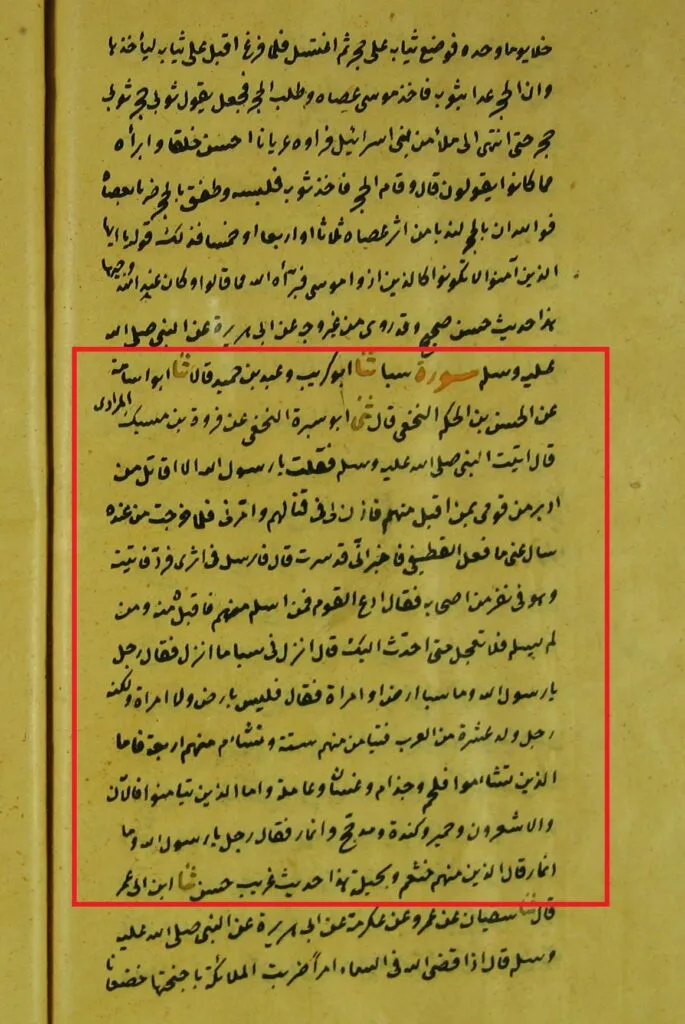 خلا يوما وحده فوضع ثيابه على حجر ثم اغتسل فلما فرغ اقبل على ثيابه ليأخذها
وان الحجر عدا بثوبه فاخذ موسى عصاه وطلب الحجر فجعل يقول ثوبي حجر ثوبي
حجر حتى انتهى الى ملأ من بني اسرائيل فراوه عريانا احسن خلقا وابرأه
مما كانوا يقولون قال وقام الحجر فاخذ ثوبه فلبسه وطفق بالحجر ضربا بعصاه
فوالله ان بالحجر لندبا من اثر عصاه ثلاثا او اربعا او خمسا فذلك قوله يا ايها
الذين آمنوا لا تكونوا كالذين اذوا موسى فبرأه الله مما قالوا وكان عند الله وجيها
هذا حديث حسن صحيح وقد روى من غير وجه عن ابى هريرة عن النبي صلى الله
عليه وسلم سورة سبا ثنا ابو كريب وعبد بن حميد قالا ثنا ابو اسامة
عن الحسن بن الحكم النخعي قال ثنى ابو سبرة النخعي عن فروة بن مسيك المرادى
قال اتيت النبي صلى الله عليه وسلم فقلت يا رسول الله الا اقاتل من
ادبر من قومى بمن اقبل منهم فاذن لى فى قتالهم وامرنى فلما خرجت من عنده
سال عنى ما فعل الغطيفي فاخبر انى قد سرت قال فارسل فى اثرى فردنى فاتيته
وهو فى نفر من اصحابه فقال ادع القوم فمن اسلم منهم فاقبل منه ومن
لم يسلم فلا تعجل حتى احدث اليك قال انزل فى سبا ما انزل فقال رجل
يا رسول الله وما سبا ارض او امراة فقال فليس بارض ولا امراة ولكنه
رجل ولد عشرة من العرب فتيامن منهم ستة وتشاءم منهم اربعة فاما
الذين تشاءموا فلخم وجذام وغسان وعاملة واما الذين تيامنوا فالازد
والاشعرون وحمير وكندة ومدحج وانمار فقال رجل يا رسول الله وما
انمار قال الذين منهم خثعم وبجيلة هذا حديث غريب حسن ثنا ابن ابى عمر
قال ثنا سفيان عن عمرو عن عكرمة عن ابى هريرة عن النبي صلى الله عليه
وسلم قال اذا قضى الله فى السماء امرا ضربت الملائكة باجنحتها خضعانا